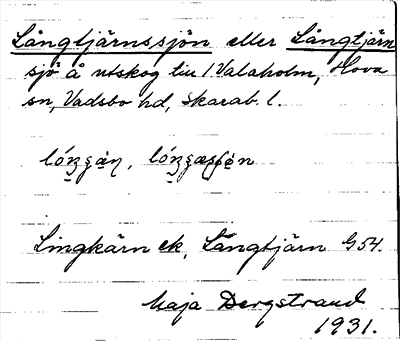 Långtjärnssjön eller Långtjärn
sjö å utskog till 1 Valaholm, Hova
sn, Vadsbo hd, Skarab. l.
Lingkärn ek, Långtjärn G 54.
Maja Bergstrand
1931.